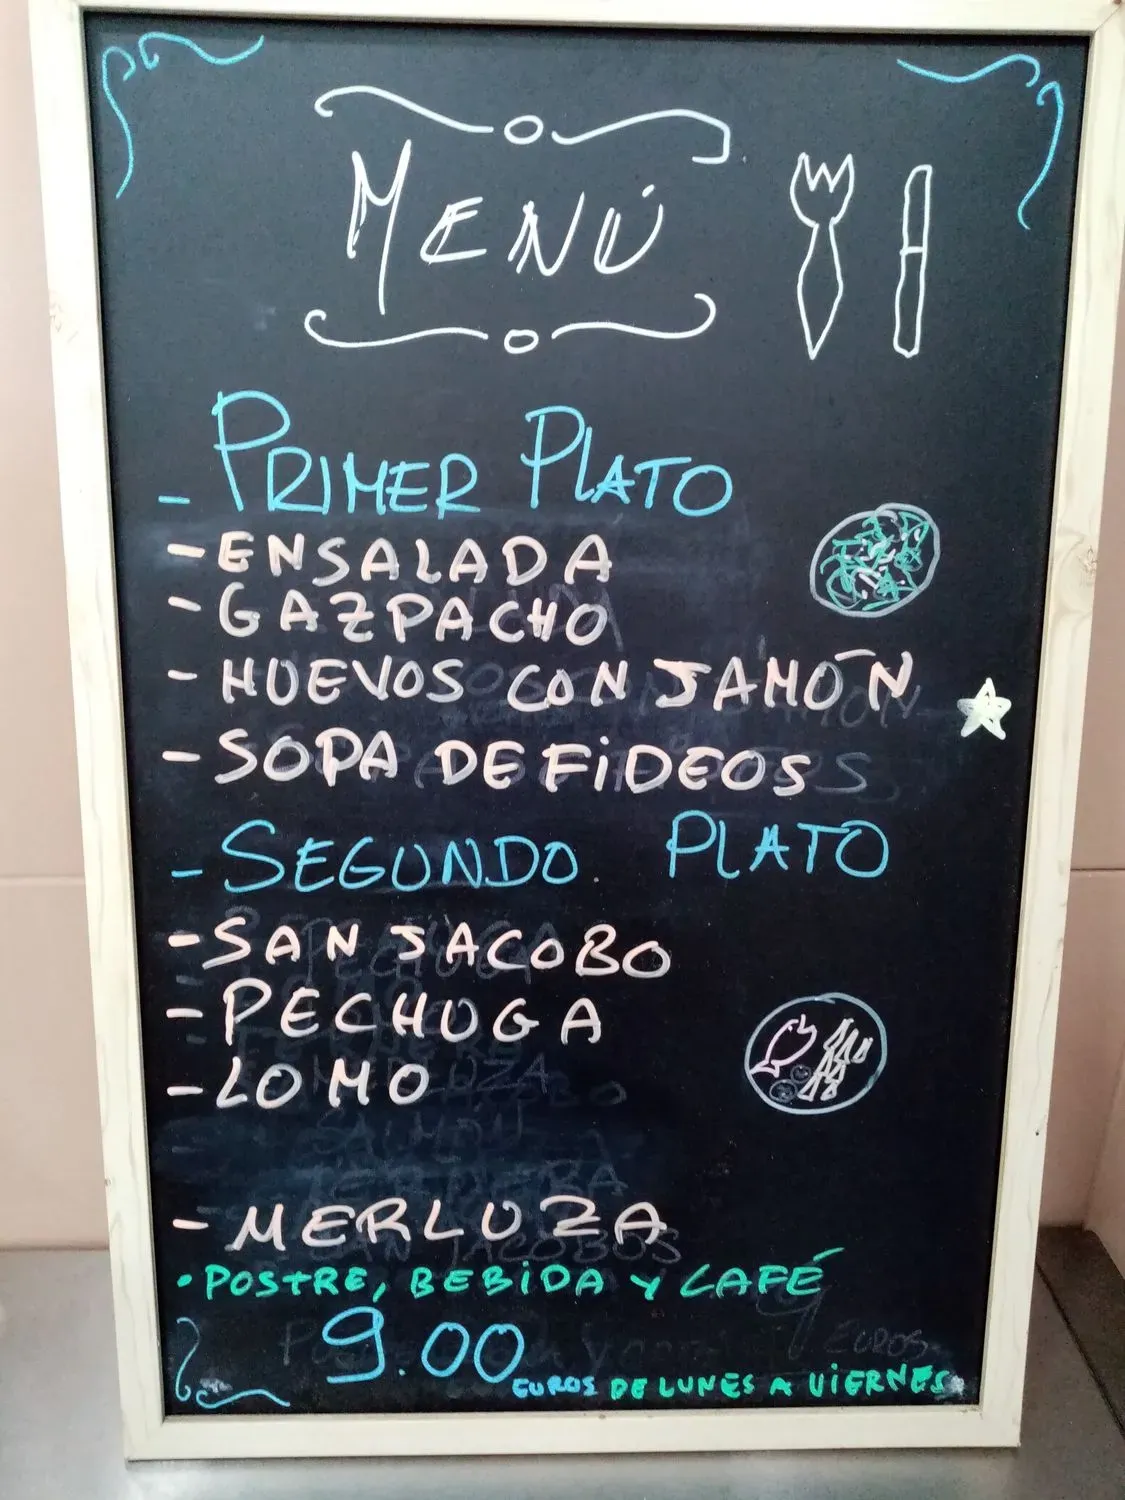 MENÚ
- PRIMER PLATO
- ENSALADA
- GAZPACHO
- HUEVOS CON JAMÓN
- SOPA DE FIDEOS
- SEGUNDO PLATO
- SAN JACOBO
- PECHUGA
- LOMO
- MERLUZA
• POSTRE, BEBIDA Y CAFÉ
9.00 EUROS DE LUNES A VIERNES